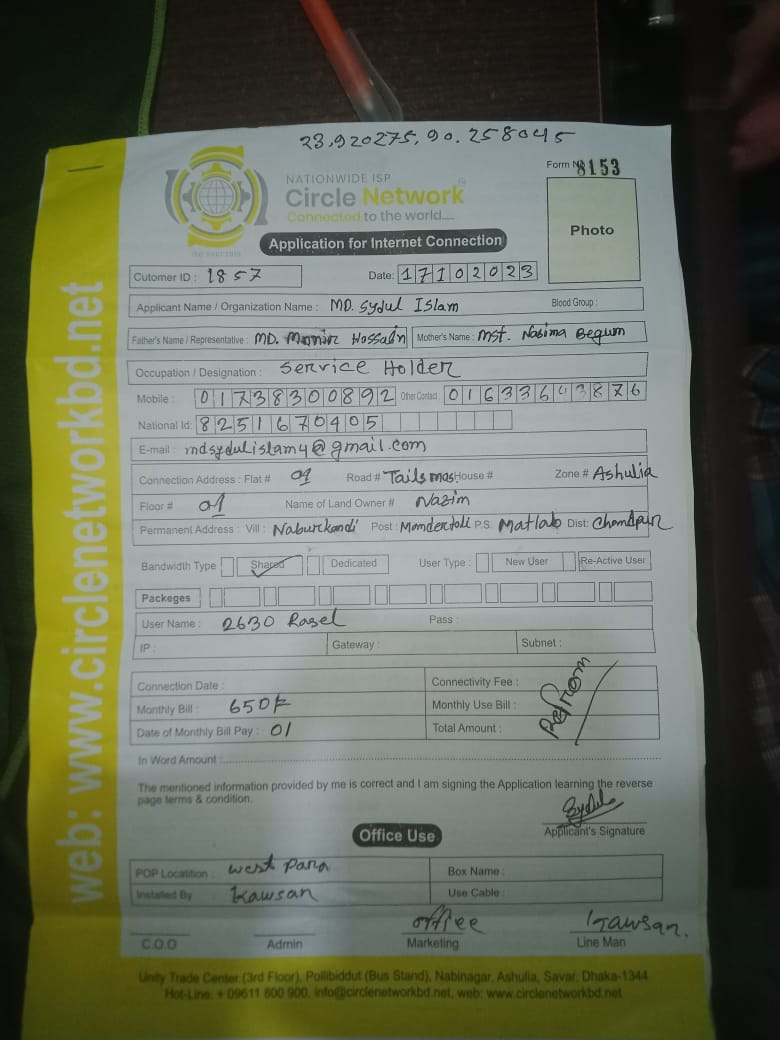 23,920275, 90.258045
Form № 8153
NATIONWIDE ISP
Circle Network
Connected to the world....
ISO 9001:2015
Photo
Application for Internet Connection
Cutomer ID : 1857 Date: 17102023
Applicant Name / Organization Name : MD. Sydul Islam Blood Group :
Father's Name / Representative : MD. Monir Hossain Mother's Name : Mst. Nasima Begum
Occupation / Designation : Service Holder
Mobile : 01738300892 Other Contact : 01633643876
National Id: 8251670405
E-mail : mdsydulislam4@gmail.com
Connection Address : Flat # 01 Road # Tailsmas House # Zone # Ashulia
Floor # 01 Name of Land Owner # Nazim
Permanent Address : Vill : Naburkandi Post : P.S. Matlab Dist: Chandpur
Bandwidth Type Shared Dedicated User Type : New User Re-Active User
Packeges
User Name : 2630 Rasel Pass :
IP : Gateway : Subnet :
Connection Date : Connectivity Fee :
Monthly Bill : 650 Monthly Use Bill :
Date of Monthly Bill Pay : 01 Total Amount :
In Word Amount :
The mentioned information provided by me is correct and I am signing the Application learning the reverse
page terms & condition.
Sydul
Applicant's Signature
Office Use
POP Locatition : West Para Box Name :
Installed By Kawsar Use Cable :
office Kawsar.
C.O.O Admin Marketing Line Man
Unity Trade Center (3rd Floor), Pollibiddut (Bus Stand), Nabinagar, Ashulia, Savar, Dhaka-1344
Hot-Line: + 09611 800 900, info@circlenetworkbd.net, web: www.circlenetworkbd.net
web: www.circlenetworkbd.net